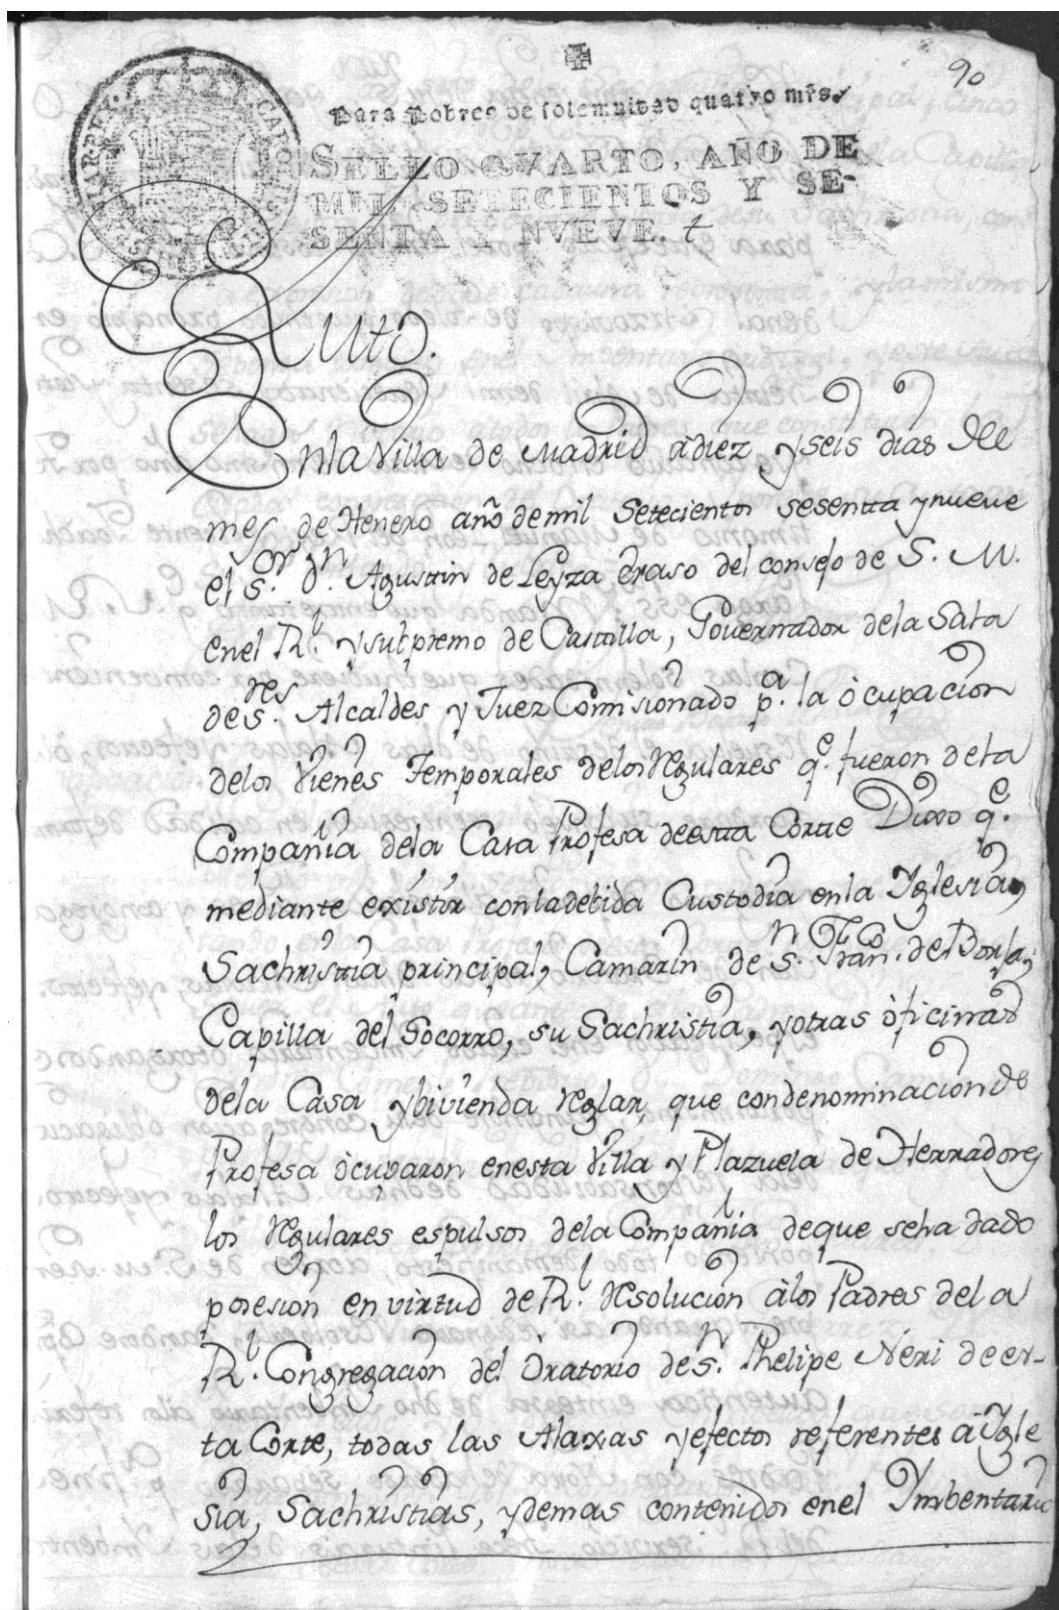 90
Para Pobres de solemnidad quatro mrs.
SELLO QVARTO, AÑO DE
MIL SETECIENTOS Y SE-
SENTA Y NVEVE. t
Auto.
En la Villa de Madrid a diez y seis dias del
mes de Henero año de mil Setecientos sesentta y nueve
el S.or d.n Agusttin de Leyza Eraso del consejo de S. M.
en el R.l y supremo de Casttilla, Governador de la Sala
de s.res Alcaldes y Juez Comisionado p.a la òcupacion
de los Vienes Temporales de los Regulares q.e fueron de la
Compañia de la Casa Profesa de estta Cortte Dixo q.e
mediante existir con la debida Custodia en la Yglesia,
Sachristtia principal, Camarin de S.n Fran.co de Borja,
Capilla del Socorro, su Sachristia, y otras òficinas
de la Casa y bivienda reglar, que con denominacion de
Profesa òcuparon en esta Villa y Plazuela de Herradores
los Regulares espulsos de la Compañia de que se ha dado
posesion en virtud de R.l Resolucion à los Padres de la
R.l Congregacion del Oratorio de S.n Phelipe Neri de es-
ta Corte, todas las Alaxas y efectos referentes à Ygle
sia, Sachristias, y demas contenidos en el Ymbentario